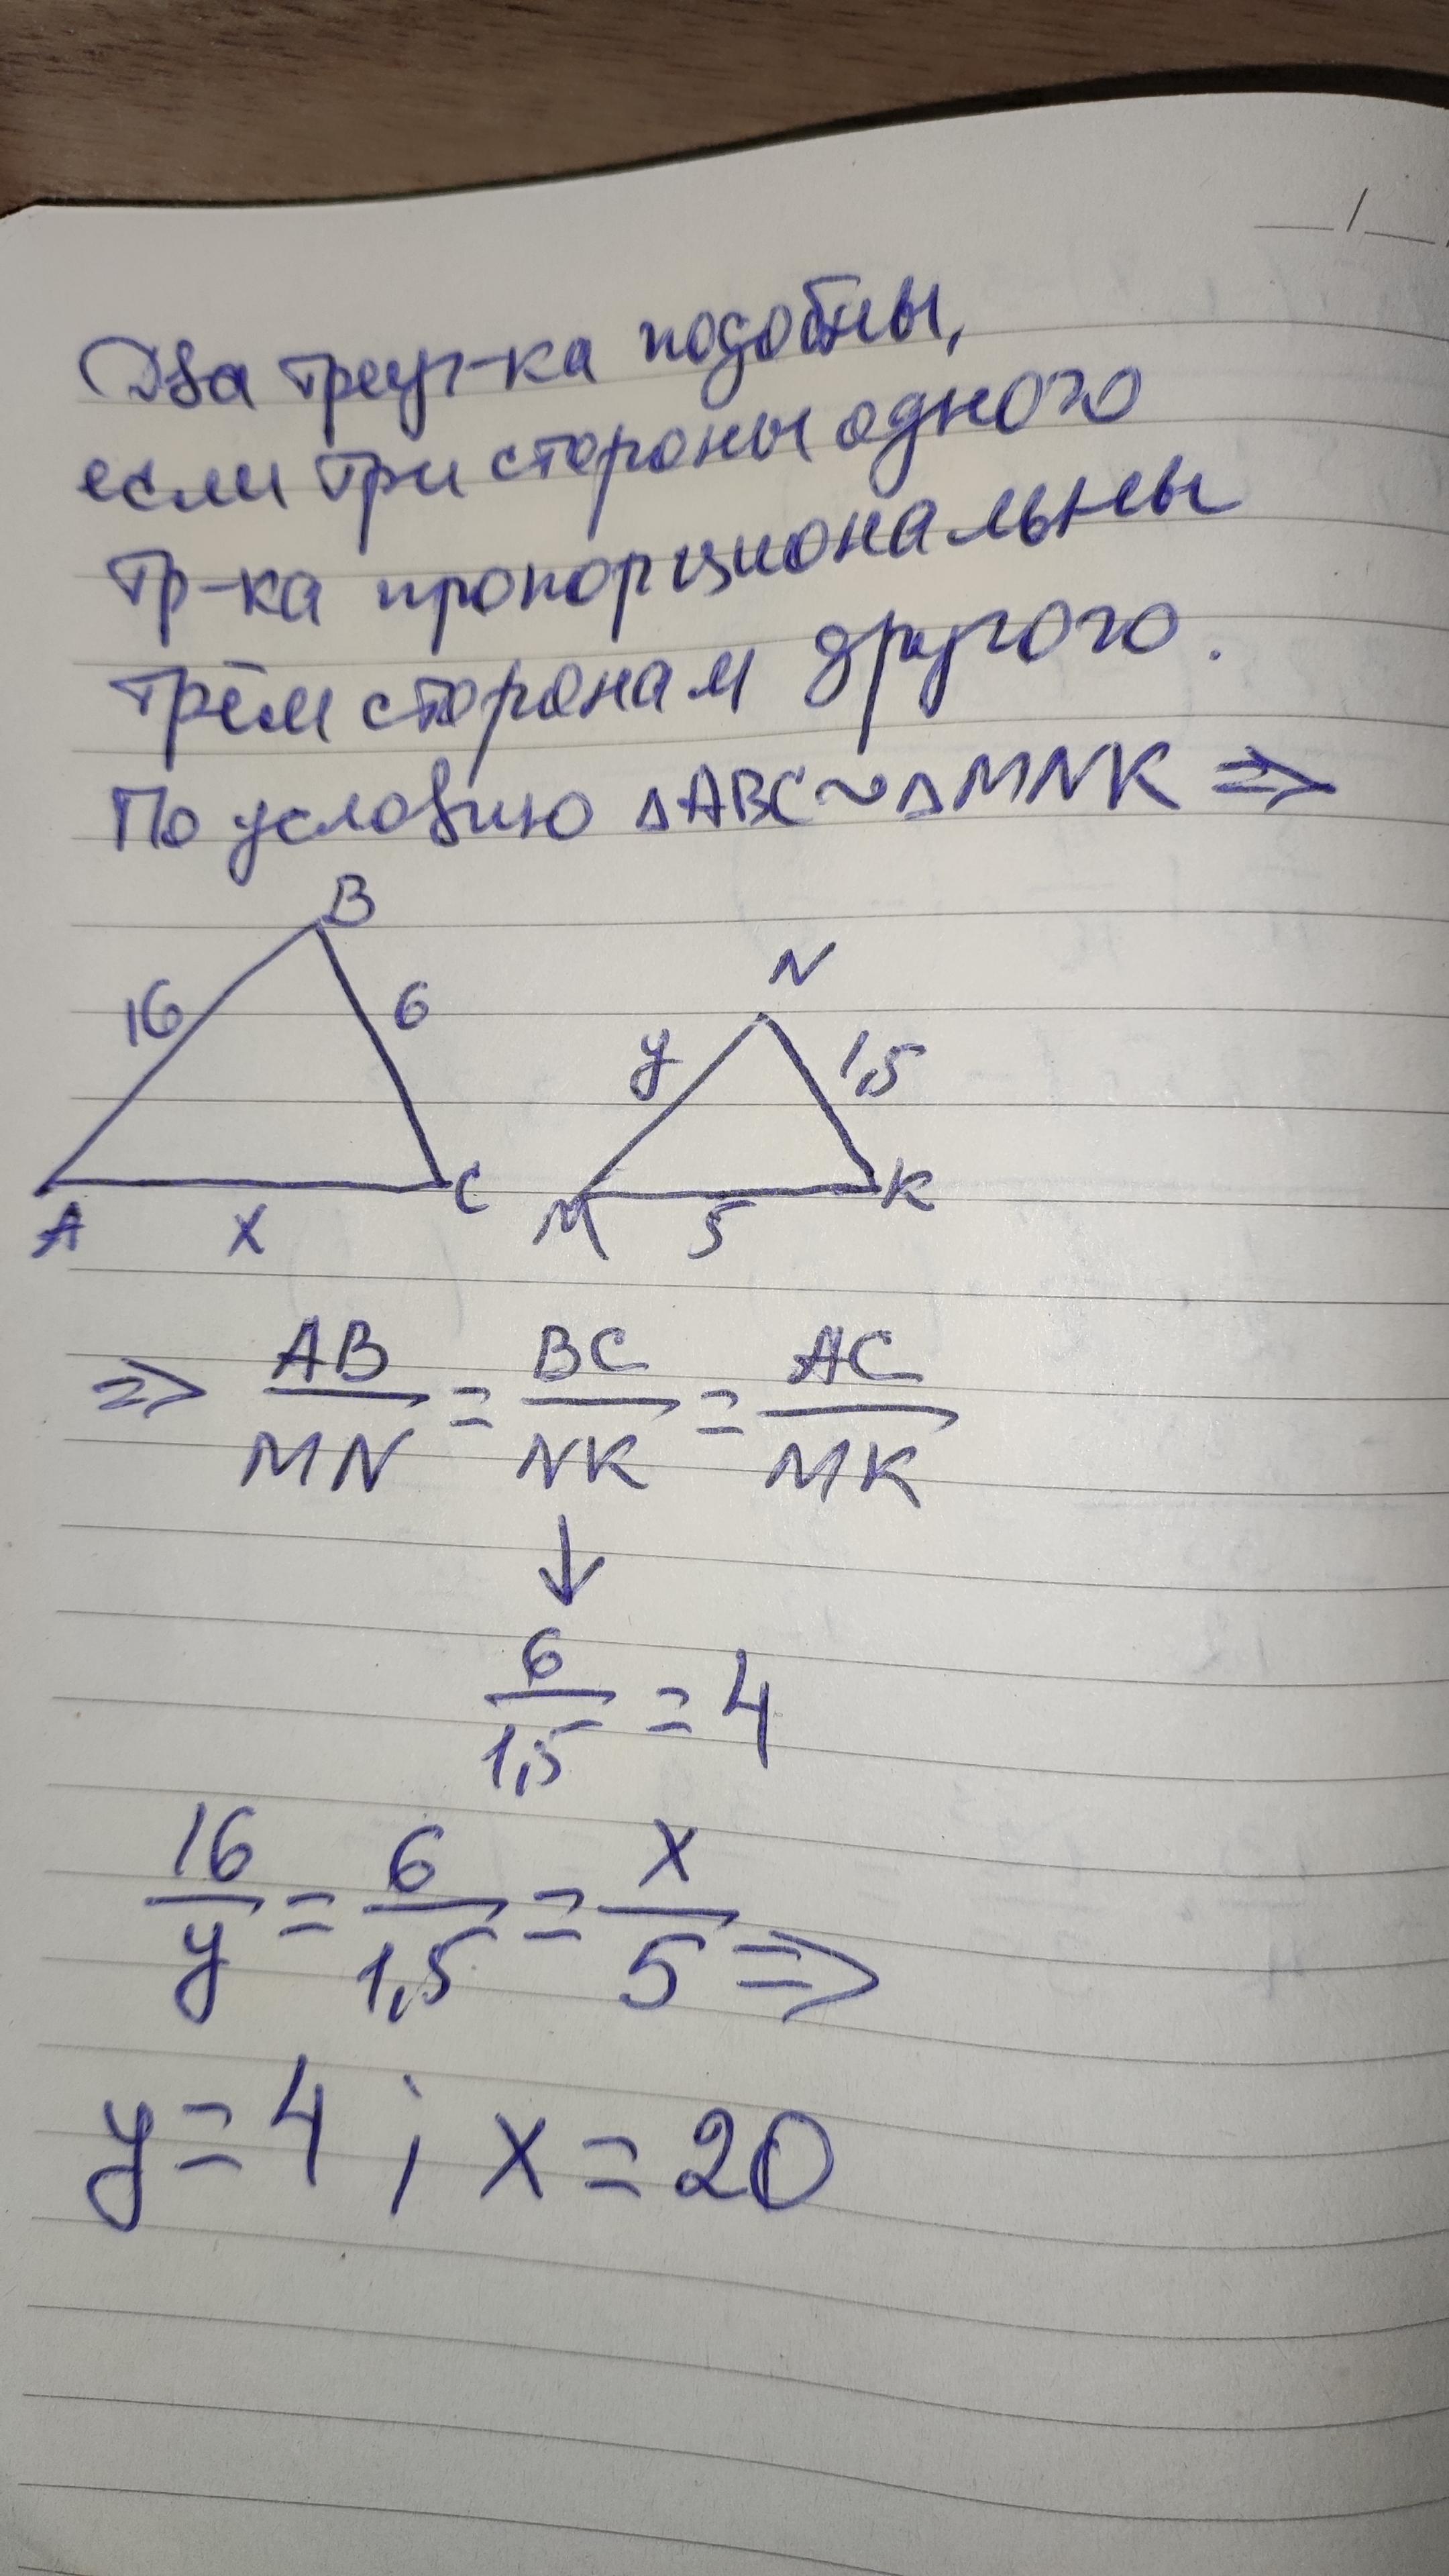 Два треуг-ка подобны,
если три стороны одного
тр-ка пропорциональны
трём сторонам другого.
По условию △ABC~△MNK ⇒
B
16 6
N
y 1,5
A x C
M 5 K
⇒ AB/MN = BC/NK = AC/MK
↓
6/1,5 = 4
16/y = 6/1,5 = x/5 ⇒
y = 4 ; x = 20